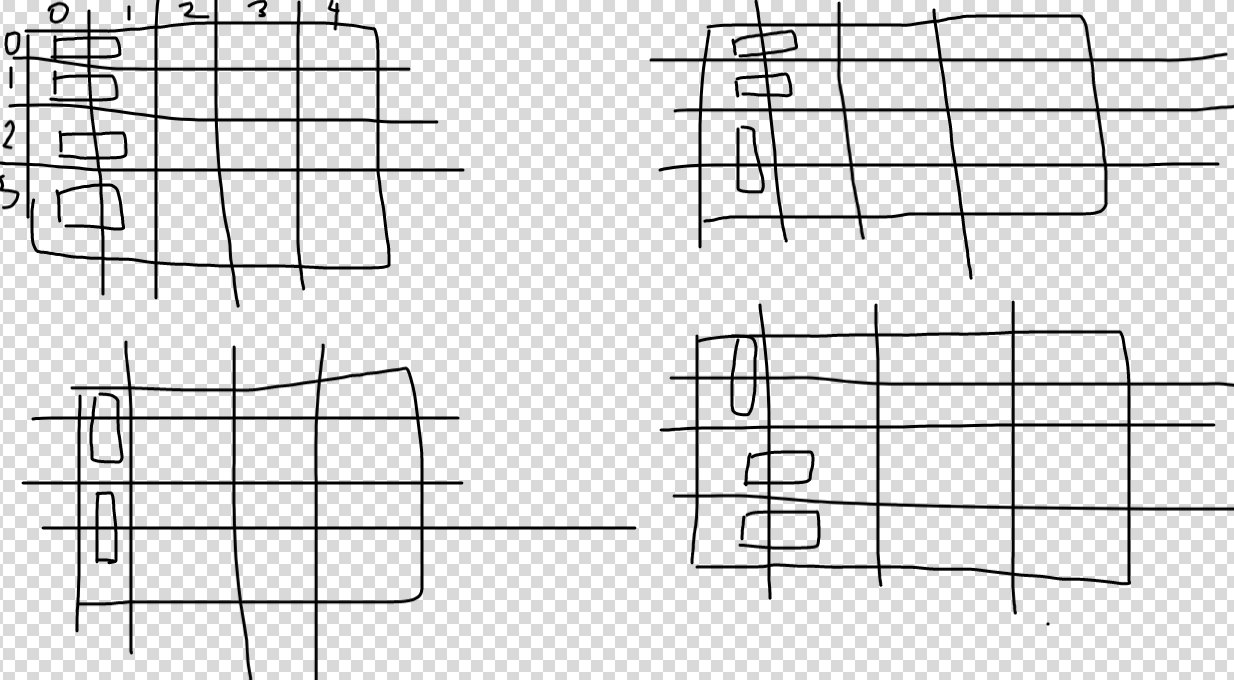 0 1 2 3 4
0
1
2
3